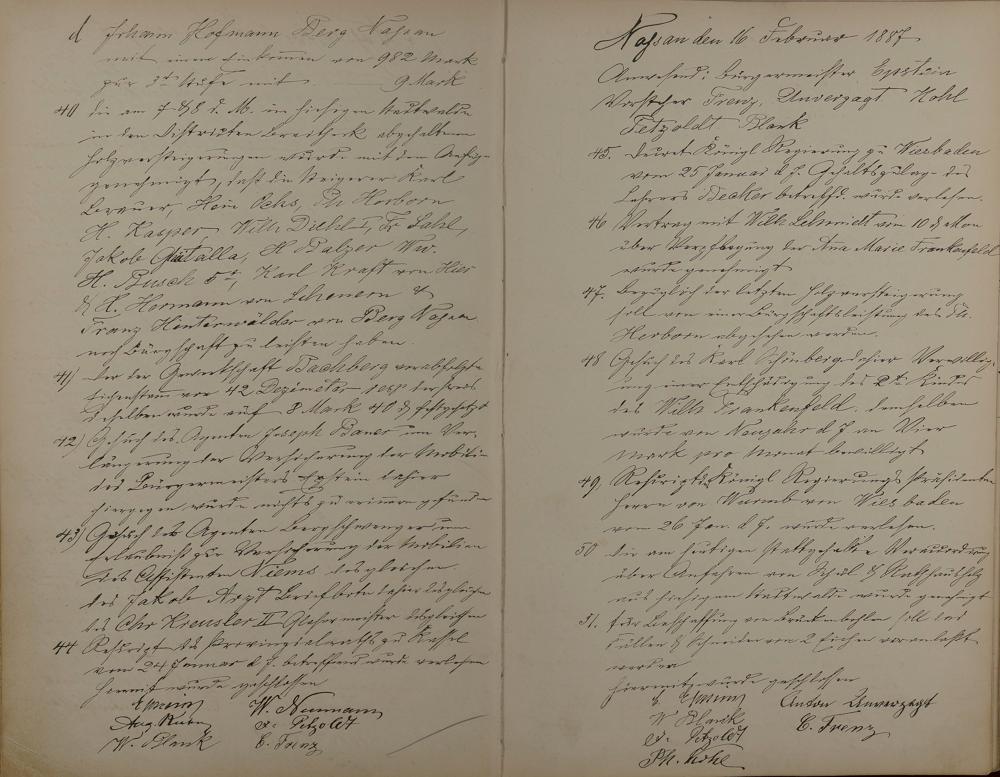 d Johann Hofmann Berg Nassau
mit einem Einkommen von 982 Mark
zur 3t Stufe mit 9 Mark
40 die am 7 & 8 d. M. im hiesigen Stadtwalde
in den Distrikten abgehaltenen
Holzversteigerungen wurde mit dem
genehmigt, daß die Steigerer Karl
Brauer, Hein Ochs, Ph Herborn
H. Kasper, Wilh Diehl I, Fr Sahl,
Jakob Gatalla, H Balzer Ww.
H. Busch 5t, Karl Kraft von Hier
& H. Hermann von Scheuern &
Franz Hinterwälder von Berg Nassau
noch Bürgschaft zu leisten haben.
41) Der der Gewerkschaft Bachberg verabfolgte
Eichenstamm von 42 Dezimeter der Preis
desselben wurde auf 8 Mark 40 & festgesetzt
42) Gesuch des Agenten Joseph Bauer um Ver-
längerung der Versicherung der Mobilien
des Bürgermeisters Epstein dahier
hiergegen wurde nichts zu erinnern gefunden
43) Gesuch des Agenten um
Erlaubniß zur Versicherung der Mobilien
des Assistenten Niems desgleichen
des Jakob Arzt Briefbote dahier desgleichen
des Chr Kreusler II Glasermeister desgleichen
44 Rescript des Provinzialraths zu Kassel
vom 24 Januar d J. betreffend wurde verlesen
Hiermit wurde geschlossen
Epstein W. Neumann
Aug. F. Petzoldt
W. Blank C. Frenz
Nassau den 16 Februar 1887
Anwesend: Bürgermeister Epstein
Vorsteher Frenz, Unverzagt Kohl
Petzoldt Blank
45. Decret Königl Regierung zu Wiesbaden
vom 25 Januar d J. Gehaltszulage des
Lehrers Becker betreffd. wurde verlesen.
46 Vertrag mit Wilh Schmidt vom 10 d Mon
über Verpflegung der Ana Marie Frankenfeld
wurde genehmigt
47. bezüglich der letzten Holzversteigerung
soll von einer Bürgschaftsleistung des Ph.
Herborn abgesehen werden.
48 Gesuch des Karl Schönberg dahier Verwillig-
ung einer Entschädigung des 2t Kindes
des Wilh Frankenfeld. demselben
wurde von Neujahr d J an Vier
Mark pro Monat bewilligt
49, Rescript Königl Regierungs Präsidenten
Herrn von Wurmb von Wiesbaden
vom 26 Jan. d J. wurde verlesen.
50 die am heutigen stattgehabte
über Anfahren von Schul & Rathhausholz
aus hiesigem Stadtwalde wurde genehmigt
51. Für Beschaffung von Brückenbohlen soll das
Fällen & Schneiden von 2 Eichen veranlaßt
werden
Hiermit wurde geschlossen
Epstein Anton Unverzagt
W Blank C. Frenz
F. Petzoldt
Ph. Kohl